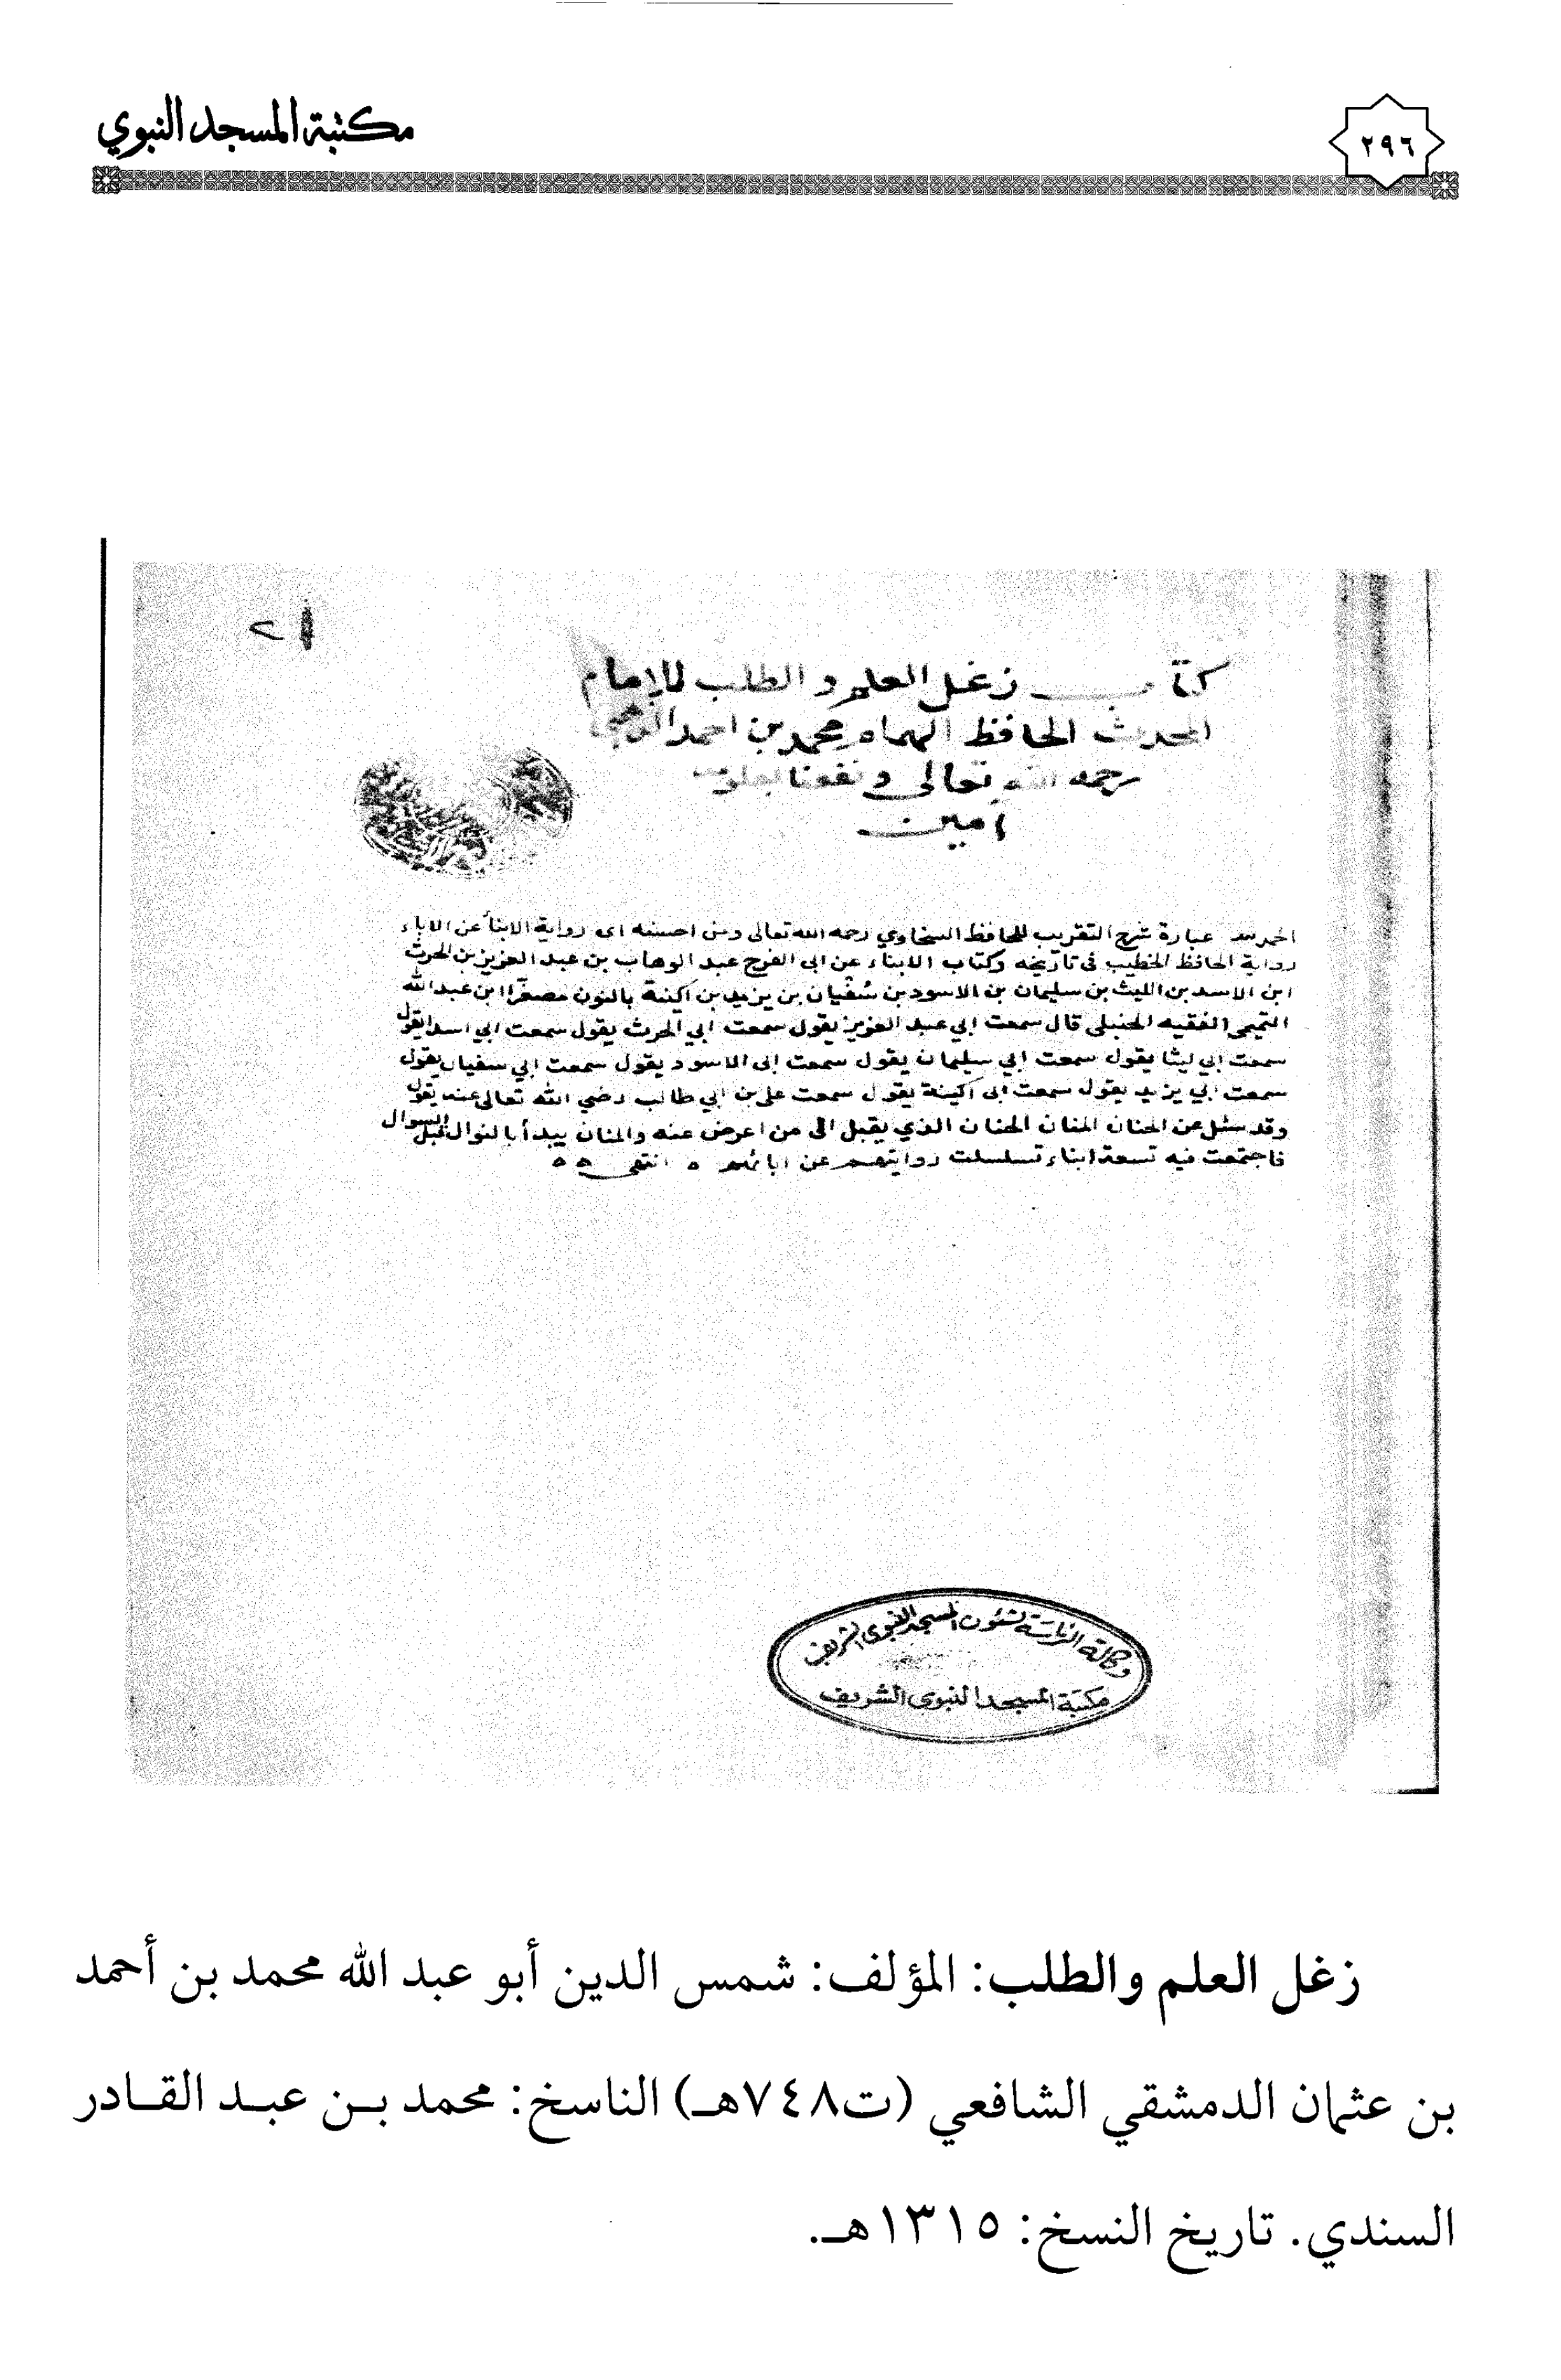 مكتبة المسجد النبوي
٢٩٦
كتاب زغل العلم والطلب للإمام
المحدث الحافظ الهمام محمد بن احمد الذهبي
رحمه الله تعالى ونفعنا بعلومه
امين
الحمد لله عبارة شرح التقريب للحافظ السخاوي رحمه الله تعالى ومن احسنه اى رواية الابنأ عن الاباء
رواية الحافظ الخطيب فى تاريخه وكتاب الابناء عن ابى الفرج عبد الوهاب بن عبد العزيز بن الحرث
ابن الاسد بن الليث بن سليمان بن الاسود بن سُفْيان بن يزيد بن اكينة بالنون مصغّرا ابن عبد الله
التميمى الفقيه الحنبلى قال سمعت ابي عبد العزيز يقول سمعت ابي الحرث يقول سمعت ابي اسدا يقول
سمعت ابي ليثا يقول سمعت ابي سليمان يقول سمعت ابى الاسود يقول سمعت ابي سفيان يقول
سمعت ابي يزيد يقول سمعت ابى اكينة يقول سمعت على بن ابي طالب رضي الله تعالى عنه يقول
وقد سئل عن الحنان المنان الحنان الذي يقبل الى من اعرض عنه والمنان يبدأ بالنوال قبل السوال
فاجتمعت فيه تسعة ابناء تسلسلت روايتهم عن ابائهم ه انتهى ه ه
وكالة الرئاسة لشئون المسجد النبوى الشريف
مكتبة المسجد النبوى الشريف
زغل العلم والطلب: المؤلف: شمس الدين أبو عبد الله محمد بن أحمد
بن عثمان الدمشقي الشافعي (ت٧٤٨هـ) الناسخ: محمد بن عبد القادر
السندي. تاريخ النسخ: ١٣١٥هـ.